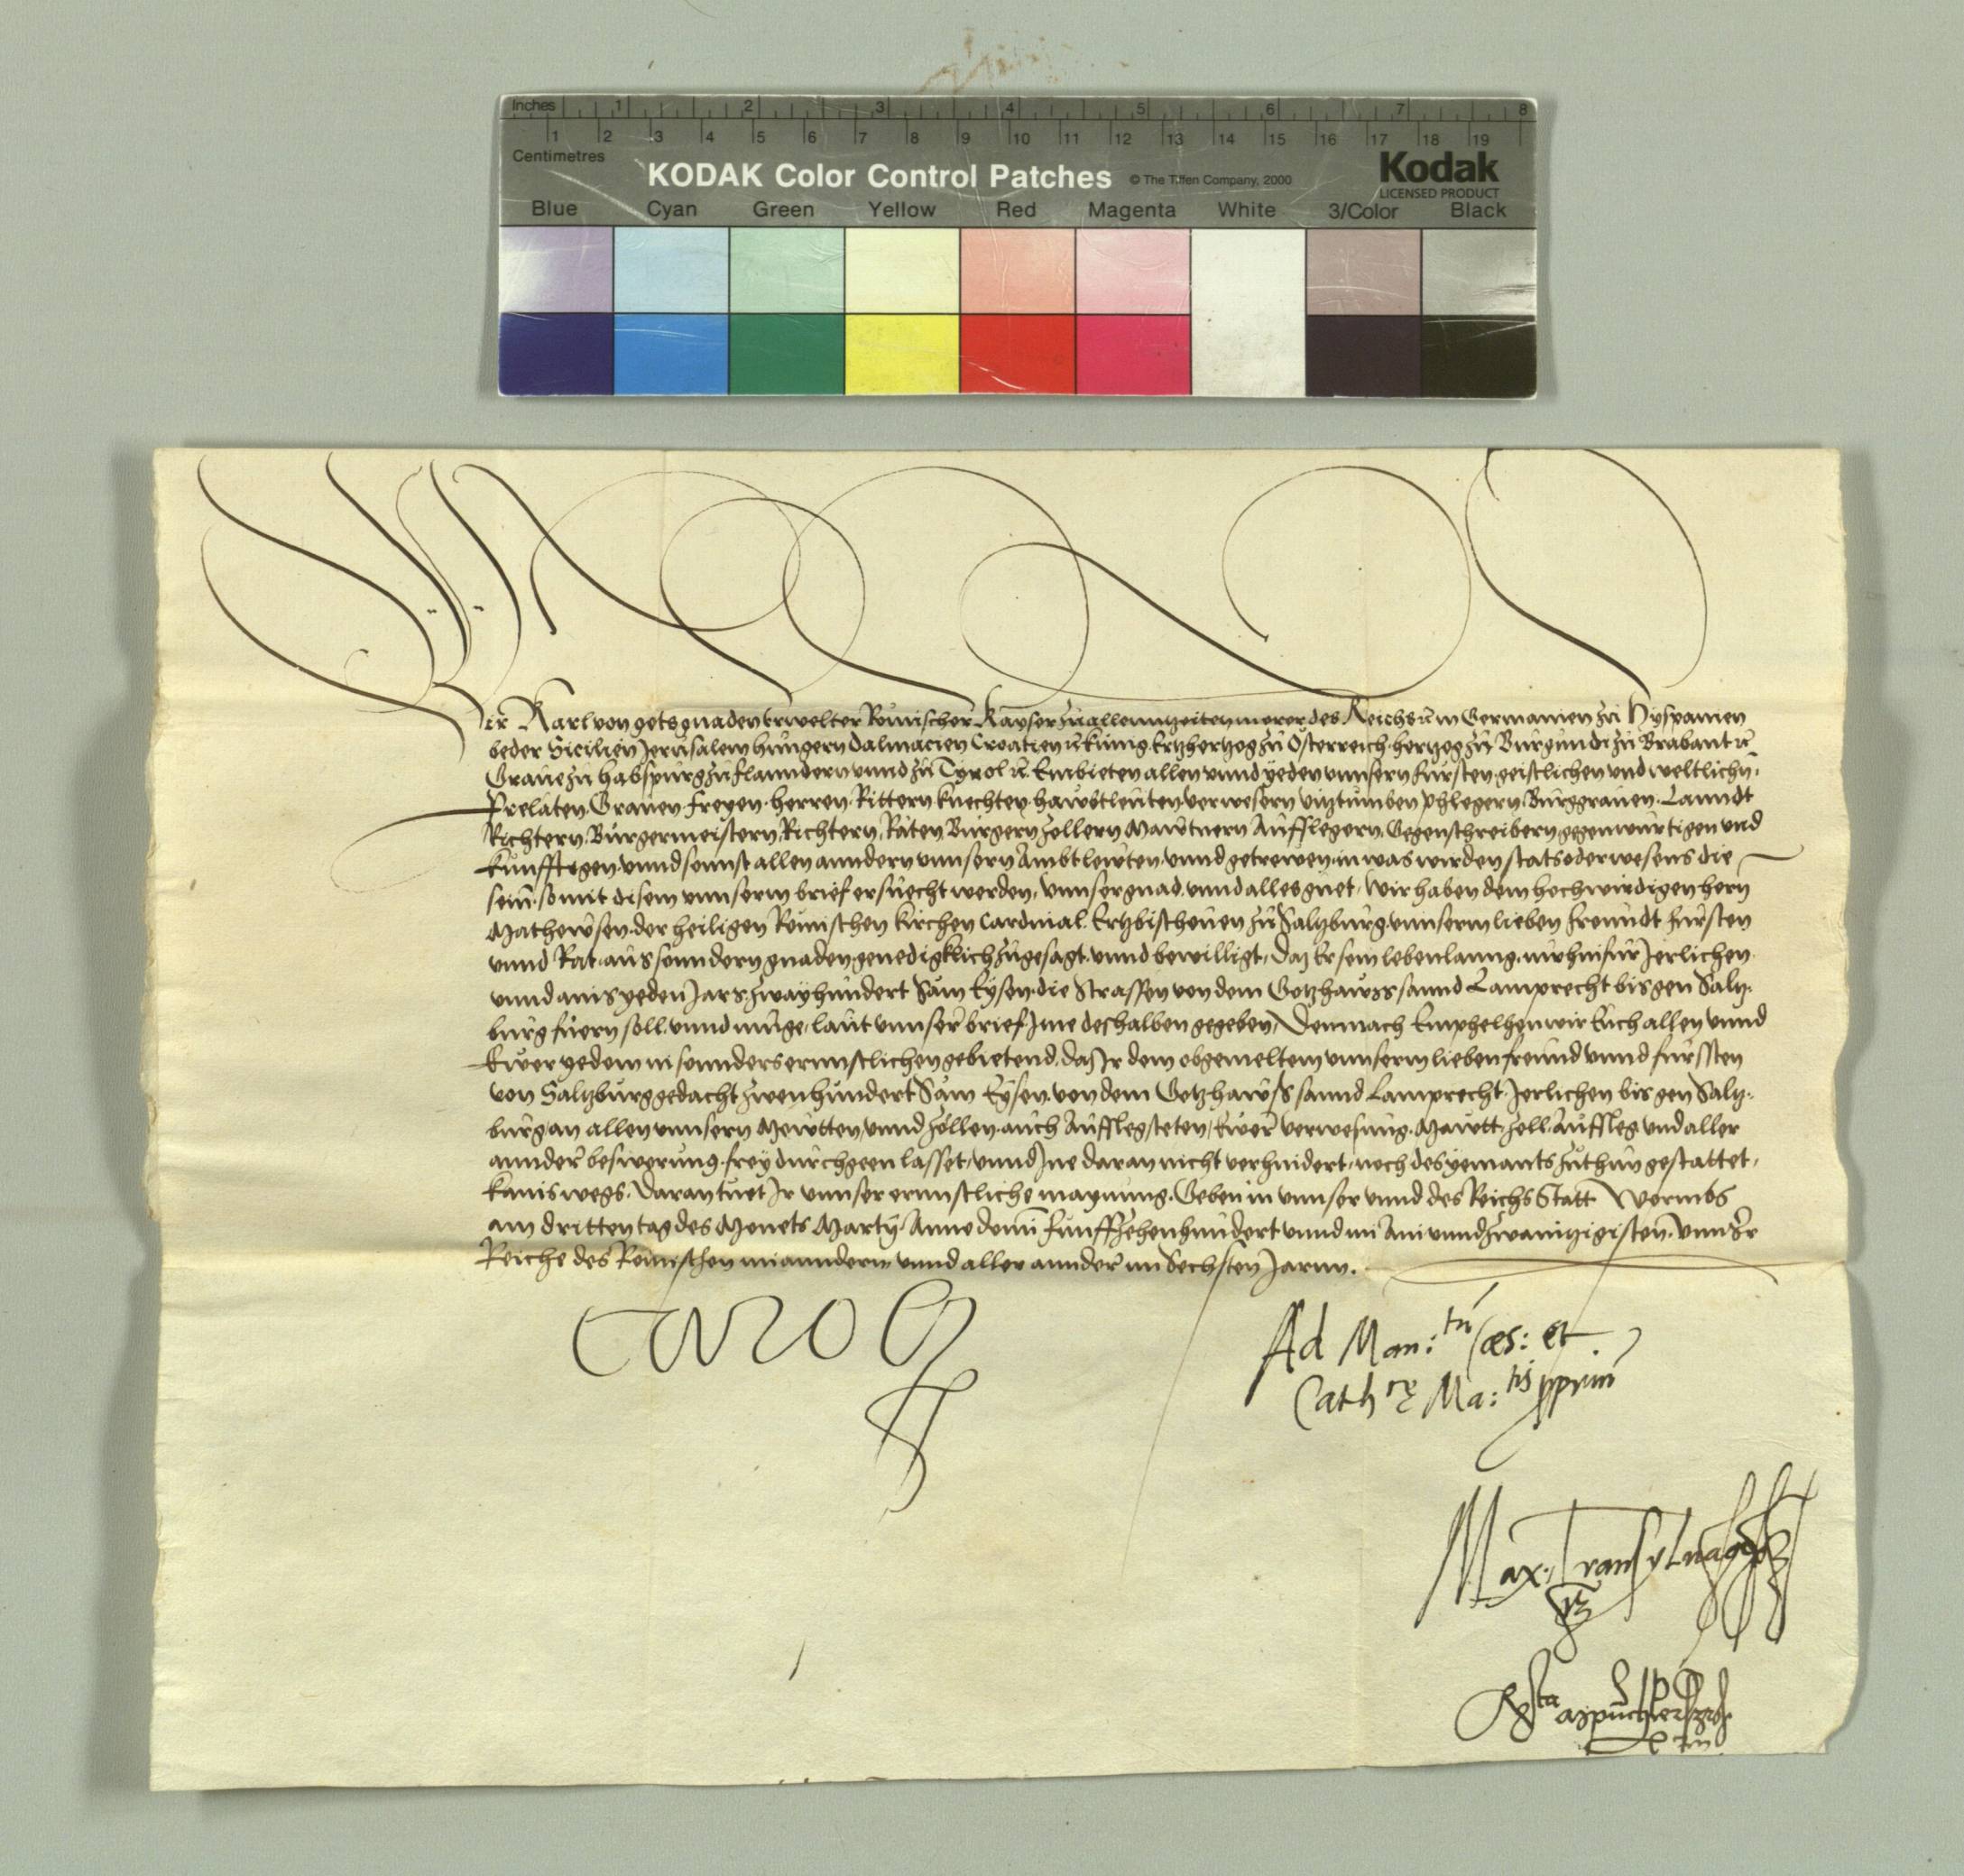 Inches 1 2 3 4 5 6 7 8
1 2 3 4 5 6 7 8 9 10 11 12 13 14 15 16 17 18 19
Centimetres
KODAK Color Control Patches © The Tiffen Company, 2000 Kodak
LICENSED PRODUCT
Blue Cyan Green Yellow Red Magenta White 3/Color Black
Wir Karl von gots gnaden Erwelter Römischer Kayser zu allenntzeiten merer des Reichs ꝛc in Germanien zu Hyspanien
beder Sicilien Jerusalem hungern Dalmacien Croatien ꝛc kunig. Ertzhertzog zu Österreich. hertzog zu Burgundi zu Brabant ꝛc
Graue zu habspurg zu flanndern vnnd zu Tyrol ꝛc. Embieten allen vnnd yeden vnnsern fursten. geistlichen vnd weltlichn.
Prelaten. Grauen. freyen. herren. Rittern knechten. haŵbtleuten. verwesern vitztumben phlegern. Burggrauen. Lanndt
Richtern, Burgermeistern, Richtern, Räten Burgern zollern Maŵtnern Aufflegern, Gegenschreibern, gegenwurtigen vnd
kunfftigen. vnnd sonnst allen anndern vnnsern Ambtleŵten. vnnd getrewen, in was wirden stats oder wesens die
sein. so mit disem vnnserm brief ersuecht werden, vnnser gnad. vnnd alles guet. Wir haben dem hochwirdigen hern
Matheŵsen. der heiligen Römischen kirchen Cardinal. Ertzbischouen zu Saltzburg. vnnserm lieben freundt fursten
vnnd Rat. aus sonndern gnaden. genedigklich zugesagt. vnnd bewilligt, Daz Er sein lebenlanng. nu hinfur Jerlichen
vnnd ains yeden Jars. zwayhundert Sam Eysen. die Strassen von dem Gotzhawss sannd Lamprecht bis gen Saltz-
burg fuern soll. vnnd muge, laut vnnser brief Jme deshalben gegeben, Demnach Emphelhen wir Euch allen vnnd
Ewer yedem in sonnders ernnstlichen gebietend. daz Jr dem obgemeltem vnnserm lieben freund vnnd furssten
von Saltzburg gedacht zwenhundert Sam Eysen. von dem Gotzhaŵss sannd Lamprecht. Jerlichen bis gen Saltz-
burg an allen vnnsern Meŵtten, vnnd zollen. auch Auffleg steten, Ewer verwesung. Maŵtt. zoll. Auffleg vnd aller
annder beswerung. frey durchgeen lasset, vnnd Jne daran nicht verhindert. noch des yemants zuthun gestattet,
kains wegs. Daran tuet Jr vnnser ernnstliche maynung. Geben in vnnser vnnd des Reichs Statt Wormbs
am dritten tag des Monets Martÿ. Anno domi funffzehenhundert vnnd im Ain vnnd zwaintzigisten. vnnser
Reiche des Römischen im anndern. vnnd aller annder im Sechsten Jarnn.
Carolus
Ad Man:tu Ces: et
Cathce Ma:tis pprm
Max: Transyluanus
Rta